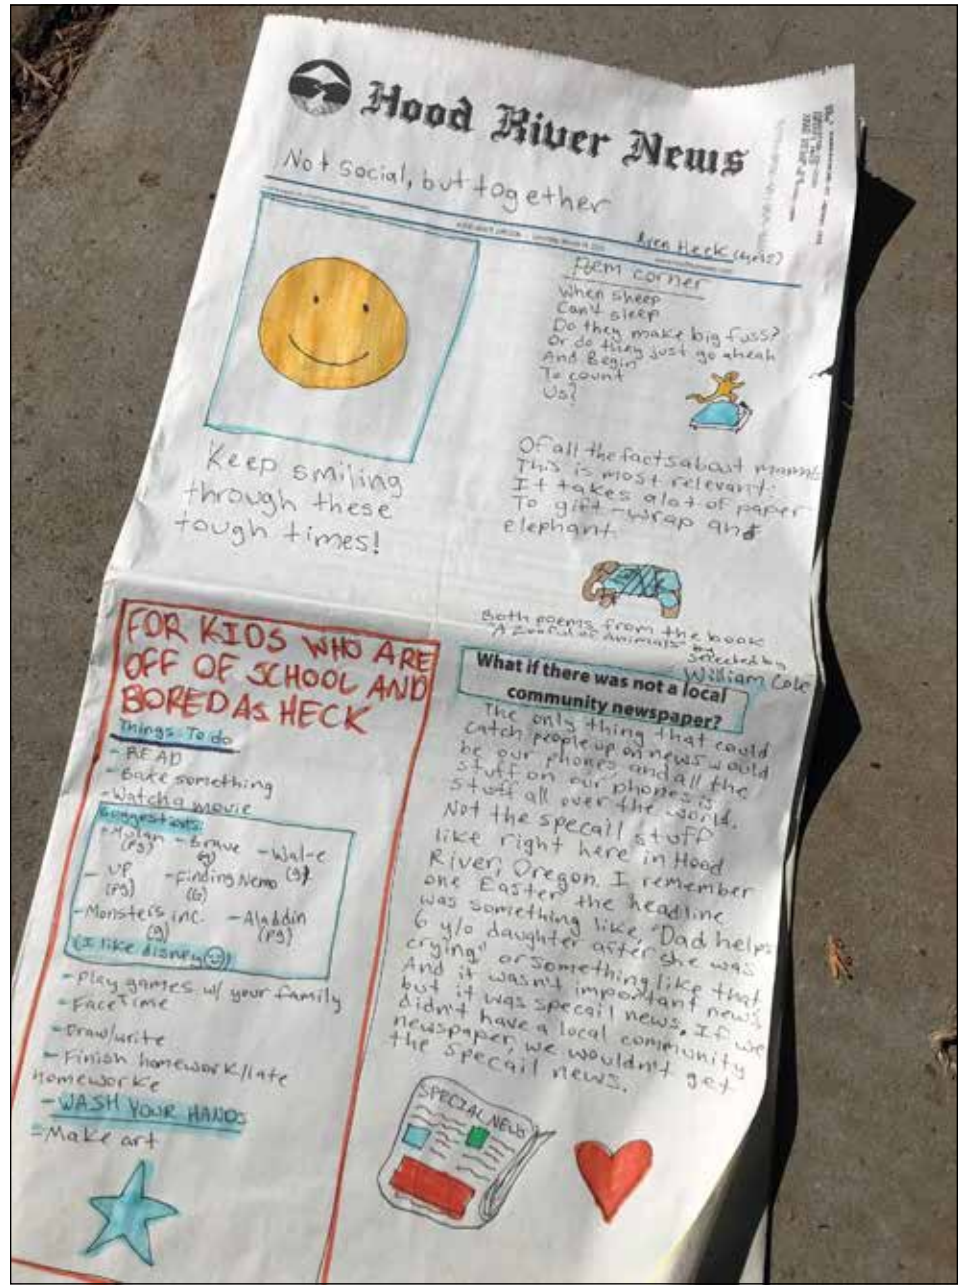 Hood River News
Not social, but together
Heck
Poem corner
When sheep
Can't sleep
Do they make big fuss?
Or do they just go aheah
And Begin
To count
Us?
Of all the facts about
This is most relevant:
It takes alot of paper
To gift-wrap and
elephant
Both poems from the book
"A Zooful of Animals" by
selected by
William Cole
Keep smiling
through these
tough times!
FOR KIDS WHO ARE
OFF OF SCHOOL AND
BORED AS HECK
Things To do
- READ
- Bake something
- Watch a movie
Suggestions:
Mulan - Brave - Wal-e
(pg) (g)
- UP - Finding Nemo
(pg) (G)
- Monsters inc. - Aladdin
(g) (pg)
(I like disney)
- Play games w/ your family
- FaceTime
- Draw/write
- Finish homework/late
homeworke
- WASH YOUR HANDS
- Make art
What if there was not a local
community newspaper?
The only thing that could
catch people up on news would
be our phones and all the
stuff on our phones is
stuff all over the world.
Not the specail stuff
like right here in Hood
River, Oregon. I remember
one Easter the headline
was something like "Dad helps
6 y/o daughter after she was
crying" or something like that
And it wasn't important news
but it was specail news. If we
didn't have a local community
newspaper, we wouldn't get
the specail news.
SPECIAL NEWS